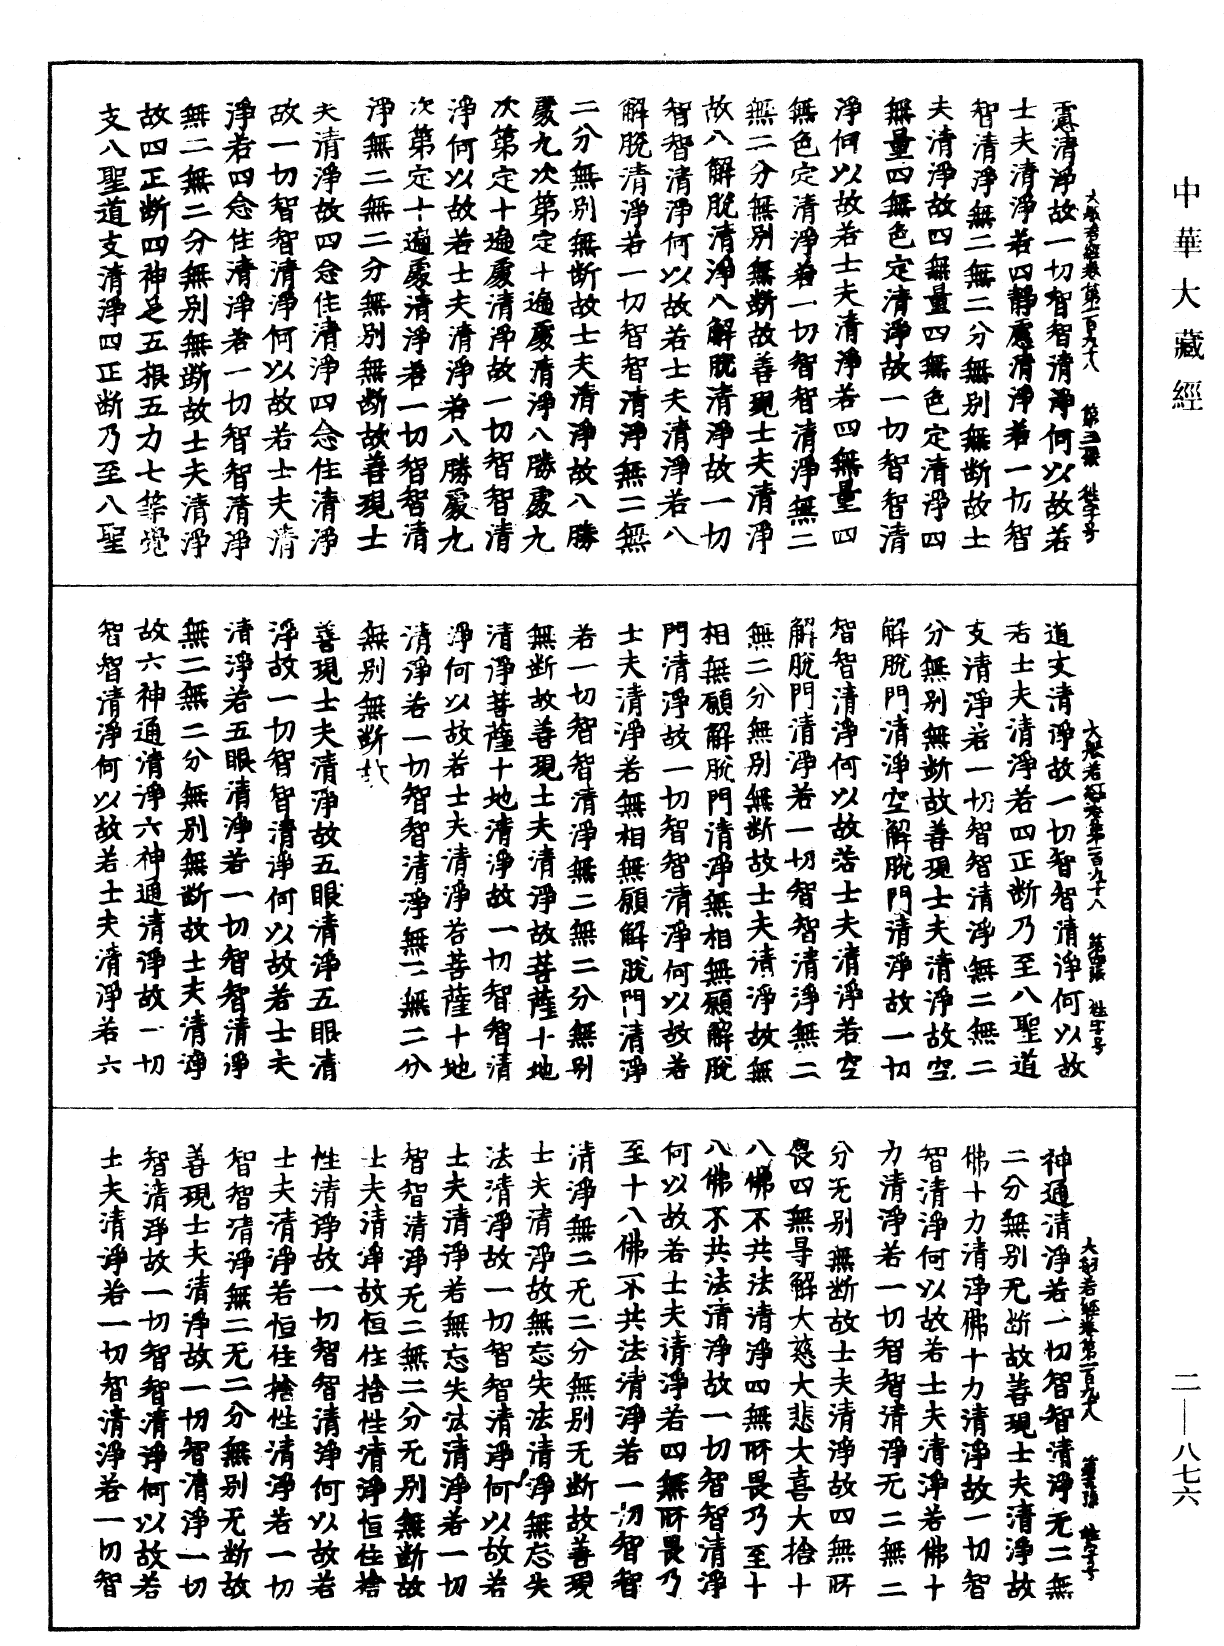 中華大藏經
大般若經卷第一百九十八 第三張 字号
慮清淨故一切智智清淨何以故若
士夫清淨若四靜慮清淨若一切智
智清淨無二無二分無別無斷故士
夫清淨故四無量四無色定清淨四
無量四無色定清淨故一切智智清
淨何以故若士夫清淨若四無量四
無色定清淨若一切智智清淨無二
無二分無別無斷故善現士夫清淨
故八解脫清淨八解脫清淨故一切
智智清淨何以故若士夫清淨若八
解脫清淨若一切智智清淨無二無
二分無別無斷故士夫清淨故八勝
處九次第定十遍處清淨八勝處九
次第定十遍處清淨故一切智智清
淨何以故若士夫清淨若八勝處九
次第定十遍處清淨若一切智智清
淨無二無二分無別無斷故善現士
夫清淨故四念住清淨四念住清淨
故一切智智清淨何以故若士夫清
淨若四念住清淨若一切智智清淨
無二無二分無別無斷故士夫清淨
故四正斷四神足五根五力七等覺
支八聖道支清淨四正斷乃至八聖
大般若經卷第一百九十八 第四張 字号
道支清淨故一切智智清淨何以故
若士夫清淨若四正斷乃至八聖道
支清淨若一切智智清淨無二無二
分無別無斷故善現士夫清淨故空
解脫門清淨空解脫門清淨故一切
智智清淨何以故若士夫清淨若空
解脫門清淨若一切智智清淨無二
無二分無別無斷故士夫清淨故無
相無願解脫門清淨無相無願解脫
門清淨故一切智智清淨何以故若
士夫清淨若無相無願解脫門清淨
若一切智智清淨無二無二分無別
無斷故善現士夫清淨故菩薩十地
清淨菩薩十地清淨故一切智智清
淨何以故若士夫清淨若菩薩十地
清淨若一切智智清淨無二無二分
無別無斷故
善現士夫清淨故五眼清淨五眼清
淨故一切智智清淨何以故若士夫
清淨若五眼清淨若一切智智清淨
無二無二分無別無斷故士夫清淨
故六神通清淨六神通清淨故一切
智智清淨何以故若士夫清淨若六
大般若經卷第一百九十八 第五張 字号
神通清淨若一切智智清淨无二無
二分無別无斷故善現士夫清淨故
佛十力清淨佛十力清淨故一切智
智清淨何以故若士夫清淨若佛十
力清淨若一切智智清淨无二無二
分无別無斷故士夫清淨故四無所
畏四無导解大慈大悲大喜大捨十
八佛不共法清淨四無所畏乃至十
八佛不共法清淨故一切智智清淨
何以故若士夫清淨若四無所畏乃
至十八佛不共法清淨若一切智智
清淨無二无二分無別无斷故善現
士夫清淨故無忘失法清淨無忘失
法清淨故一切智智清淨何以故若
士夫清淨若無忘失法清淨若一切
智智清淨无二無二分无別無斷故
士夫清淨故恒住捨性清淨恒住捨
性清淨故一切智智清淨何以故若
士夫清淨若恒住捨性清淨若一切
智智清淨無二无二分無別无斷故
善現士夫清淨故一切智清淨一切
智清淨故一切智智清淨何以故若
士夫清淨若一切智清淨若一切智
二——八七六